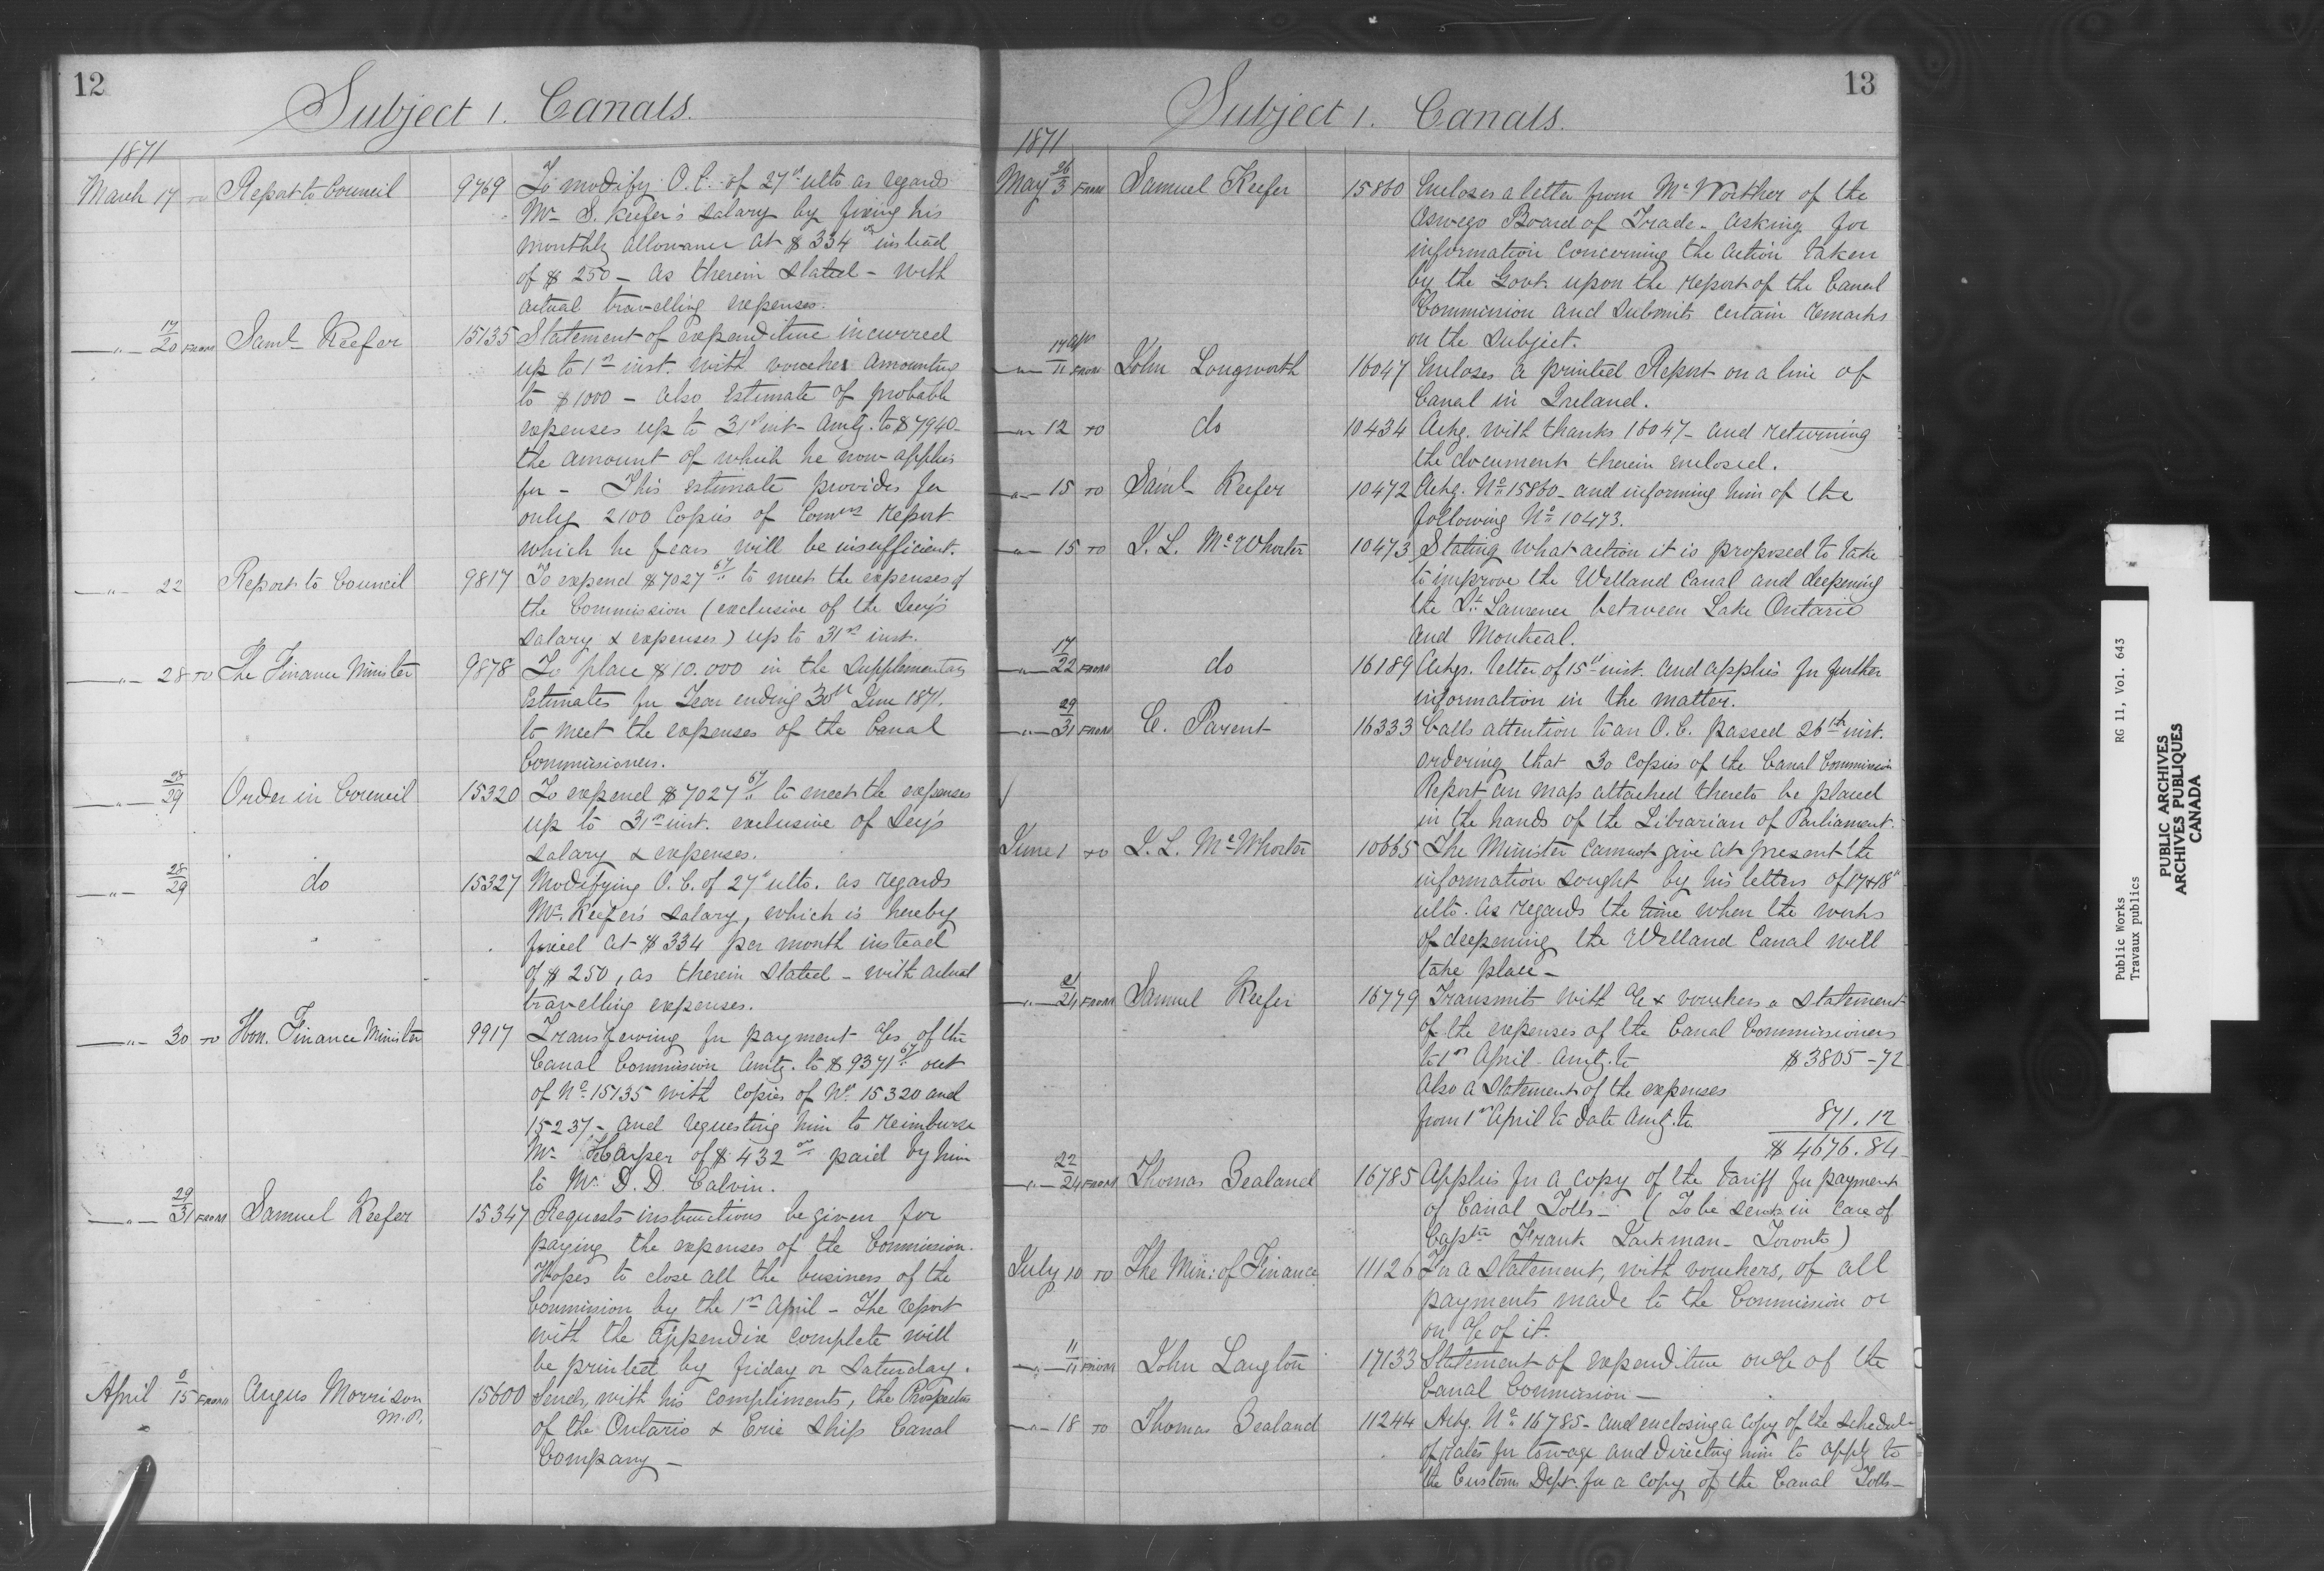 12
Subject 1. Canals.
1871
March 17 TO Report to Council 9769 To modify O.C. of 27th ulto as regards
Mr S. Keefer's salary by fixing his
monthly allowance at $334 00 instead
of $250 - as therein stated - with
actual travelling expenses.
" 17/20 FROM Saml Keefer 15135 Statement of expenditure incurred
up to 1st inst. with voucher amounting
to $1000 - also Estimate of probable
expenses up to 31st inst - Amtg. to $7940 -
the amount of which he now applies
for - This estimate provides for
only 2100 Copies of Comrs report
which he fears will be insufficient.
" 22 Report to Council 9817 To expend $7027 67 to meet the expenses of
the Commission (exclusive of the Secy's
salary & expenses) up to 31st inst.
" 28 TO The Finance Minister 9878 To place $10.000 in the Supplementary
Estimates for Year ending 30th June 1871.
to meet the expenses of the Canal
Commissioners.
" 28/29 Order in Council 15320 To expend $7027 67 to meet the expenses
up to 31st inst. exclusive of Secy's
salary & expenses.
" 28/29 do 15327 Modifying O.C. of 27th ulto. as regards
Mr. Keefer's salary, which is hereby
fixed at $334 per month instead
of $250, as therein stated - with actual
travelling expenses.
" 30 TO Hon. Finance Minister 9917 Transferring for payment a/cs of the
Canal Commission Amtg. to $9371 67 out
of No. 15135 with copies of No. 15320 and
15237 - and requesting him to reimburse
Mr Harper of $432 00 paid by him
to Mr. D. D. Calvin.
" 29/31 FROM Samuel Keefer 15347 Requests instructions be given for
paying the expenses of the Commission.
Hopes to close all the business of the
Commission by the 1st April - The report
with the Appendix complete will
be printed by Friday or Saturday.
April 15 FROM Angus Morrison 15600 Sends, with his compliments, the Prospectus
M.P.
of the Ontario & Erie Ship Canal
Company -
13
Subject 1. Canals.
1871
May 26/3 FROM Samuel Keefer 15860 Encloses a letter from McWorther of the
Oswego Board of Trade - asking for
information concerning the action taken
by the Govt. upon the report of the Canal
Commission and submits certain remarks
on the subject.
" 17 Apr/11 FROM John Longworth 16047 Encloses a printed Report on a line of
Canal in Ireland.
" 12 TO do 10434 Ackg. with thanks 16047 - and returning
the document therein enclosed.
" 15 TO Saml Keefer 10472 Ackg. No 15860 - and informing him of the
following No 10473.
" 15 TO J. L. McWhorter 10473 Stating what action it is proposed to take
to improve the Welland Canal and deepening
the St. Lawrence between Lake Ontario
and Montreal.
" 17/22 FROM do 16189 Ackgs. letter of 15th inst. and applies for further
information in the matter.
" 29/31 FROM E. Parent 16333 Calls attention to an O.C. passed 26th inst.
ordering that 30 copies of the Canal Commission
Report an map attached thereto be placed
in the hands of the Librarian of Parliament.
June 1 TO J. L. McWhorter 10665 The Minister cannot give at present the
information sought by his letters of 17 & 18th
ulto. as regards the time when the works
of deepening the Welland Canal will
take place -
" 21/24 FROM Samuel Keefer 16779 Transmits with a/c & vouchers a statement
of the expenses of the Canal Commissioners
to 1st April - Amtg. to $3805-72
Also a statement of the expenses
from 1st April to date Amtg. to 871.12
$4676.84
" 22/24 FROM Thomas Zealand 16785 Applies for a copy of the tariff for payment
of Canal Tolls - (To be sent in care of
Captn Frank Jackman - Toronto)
July 10 TO The Min: of Finance 11126 For a statement, with vouchers, of all
payments made to the Commission or
on a/c of it.
" 11/11 FROM John Langton 17133 Statement of expenditure on a/c of the
Canal Commission -
" 18 TO Thomas Zealand 11244 Ackg. No 16785 - and enclosing a copy of the schedule
of rates for towage and directing him to apply to
the Customs Dept. for a copy of the Canal Tolls -
Public Works RG 11, Vol. 643
Travaux publics
PUBLIC ARCHIVES
ARCHIVES PUBLIQUES
CANADA